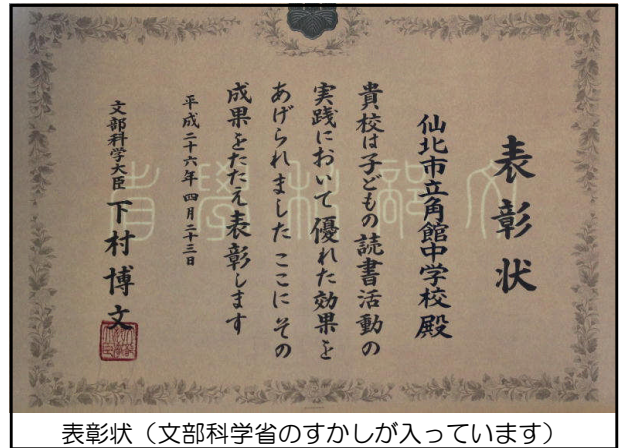 表彰状
仙北市立角館中学校殿
貴校は子どもの読書活動の
実践において優れた効果を
あげられました ここに その
成果をたたえ表彰します
平成二十六年四月二十三日
文部科学大臣 下村博文
文部科學省
表彰状（文部科学省のすかしが入っています）